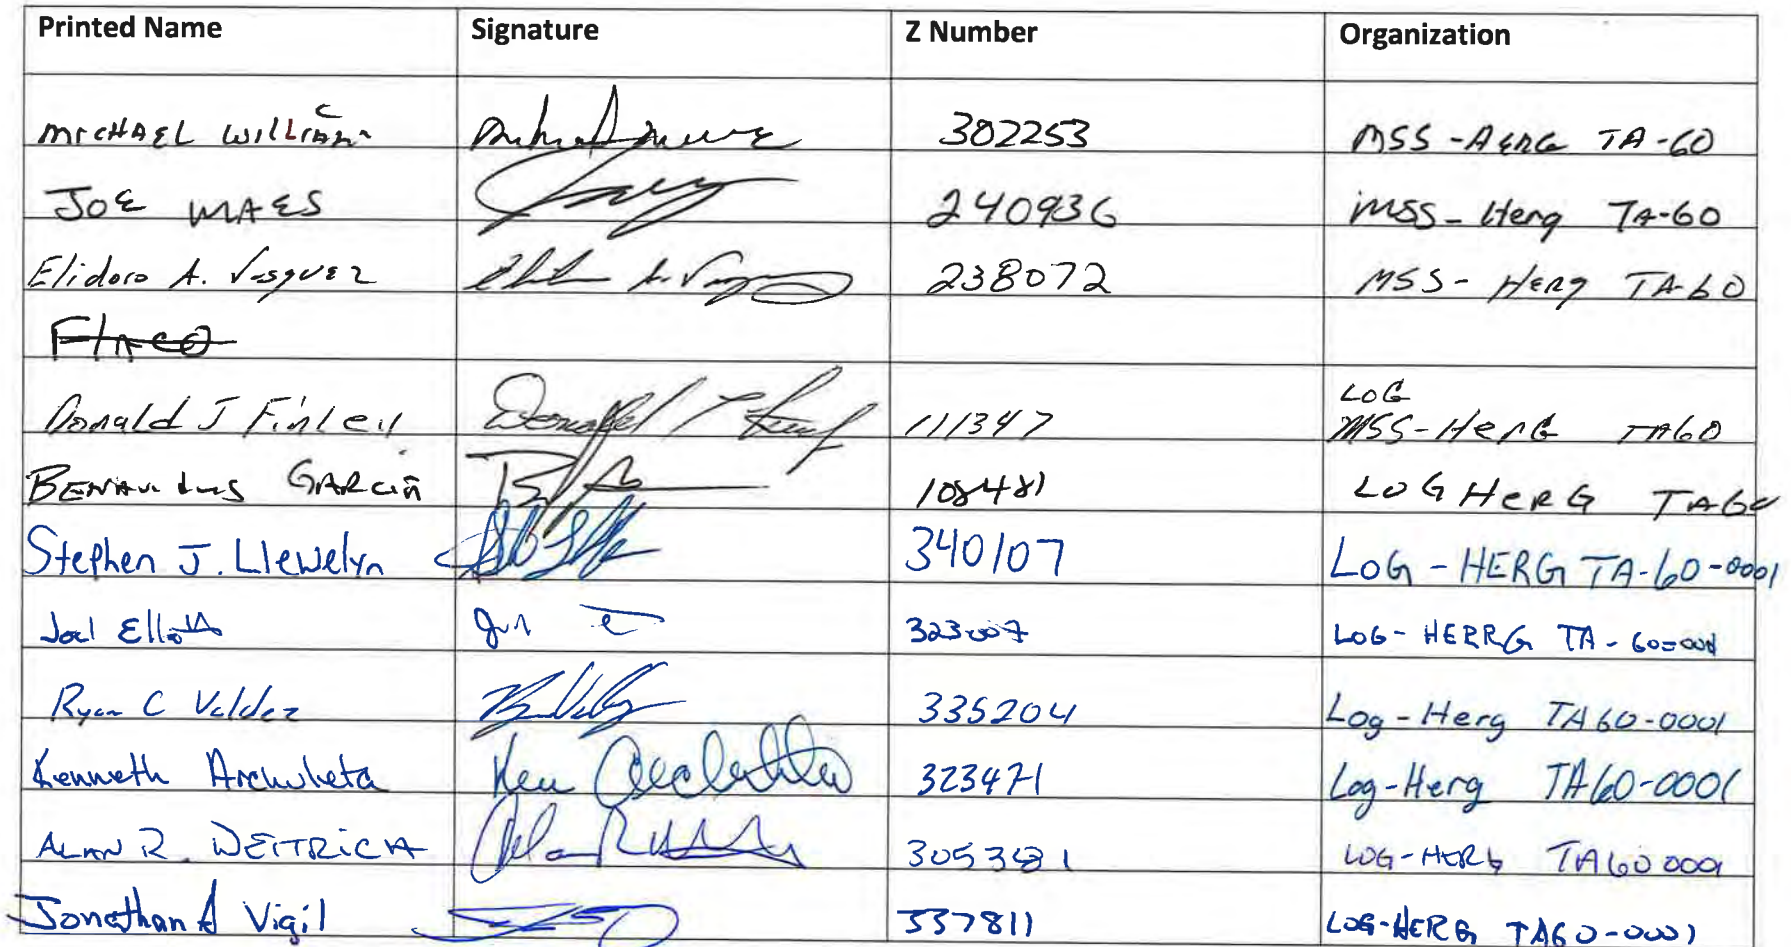 Printed Name Signature Z Number Organization
MICHAEL WILLIAMS 302253 MSS-HERG TA-60
JOE MAES 240936 MSS-Herg TA-60
Elidoro A. Vasquez 238072 MSS-Herg TA-60
Flaco
LOG
Donald J Finleil 111347 MSS-HerG TA60
GARCIA 108481 LOG HERG TA60
Stephen J. Llewelyn 340107 LOG-HERG TA-60-0001
Joel Elliott 323007 LOG-HERRG TA-60-0001
Ryan C Valdez 335204 Log-Herg TA60-0001
Kenneth Archuleta Ken Archuleta 323471 Log-Herg TA60-0001
ALAN R. DEITRICH LOG-HERG TA60 0001
Jonathan A Vigil 337811 LOG-HERG TA60-0001